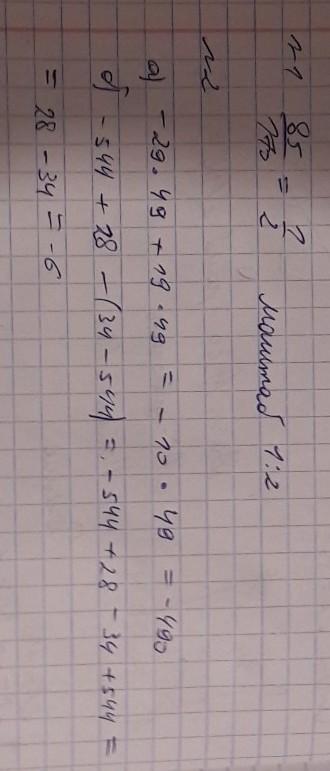 n-1 85/170 = 1/2 масштаб 1:2
n-2
а) - 29 · 49 + 19 · 49 = - 10 · 49 = - 490
б) - 544 + 28 - (34 - 544) = - 544 + 28 - 34 + 544 =
= 28 - 34 = - 6